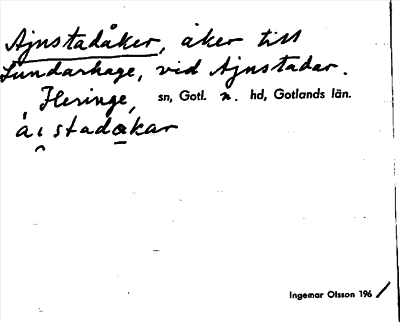 Ajnstadåker, åker till
Lundarhage, vid Ajnstadar.
Heringe, sn, Gotl. n. hd, Gotlands län.
ài̯stadakar
Ingemar Olsson 1961